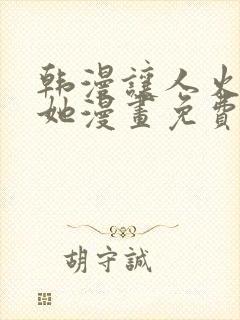 韩漫讓人火
她漫畫免費
胡守誠